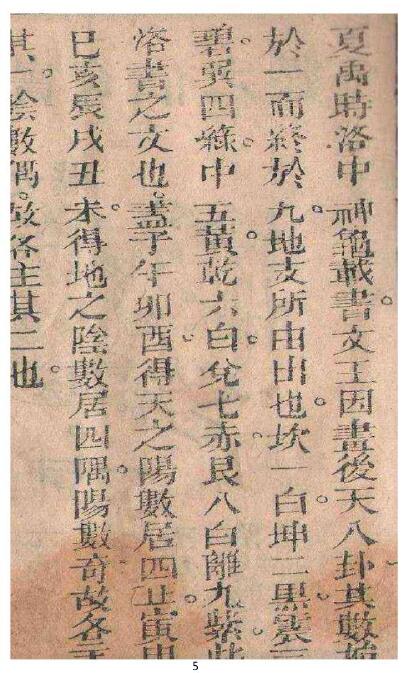 夏禹時洛中神龜戴書。文王因畫後天八卦。其數始
於一而終於九。地支所由出也。坎一白。坤二黑。震三
碧。巽四綠。中五黃。乾六白。兌七赤。艮八白。離九紫。此
洛書之文也。蓋子午卯酉得天之陽數居四正。寅申
巳亥辰戌丑未。得地之陰數居四隅。陽數奇故各主
其一。陰數偶。故各主其二也。
5